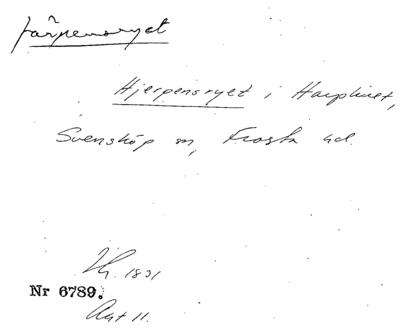 Järpensryet
Hjerpensryet i Harphult,
Svensköp sn, Frosta hd.
1831
Nr 6789.
Akt 11.